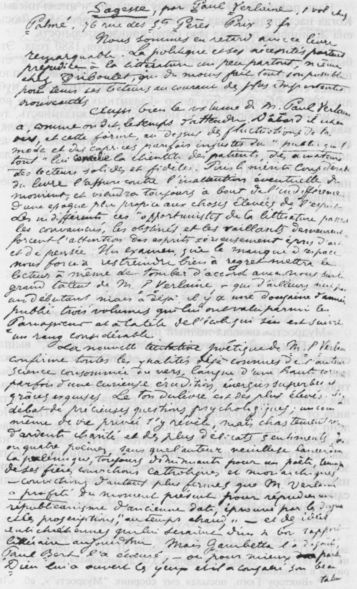 Sagesse, par Paul Verlaine, 1 vol chez
Palmé, 76 rue des Sts Pères. Prix 3 fr
Nous sommes en retard avec ce livre
remarquable. La politique et ses nécessités portent
préjudice à la littérature un peu partout, même
chez Triboulet, qui du moins fait tout son possible
pour tenir ses lecteurs au courant de plus importantes
nouveautés
bien le volume de M. Paul Verlaine
a, comme on dit, le temps d'attendre. D'abord il est en
vers, et cette forme, au dessus des fluctuations de la
mode et des caprices parfois injustes du "public qui
tout" lui la clientèle des patients, des amateurs
des lecteurs solides et fidèles. Puis le mérite
du livre l'appuie contre l'inattention éventuelle du
moment et viendra toujours à bout de l'indifférence
d'une époque plus propice aux choses élevées de l'esprit.
Les indifférents, ces "opportunistes de la littérature passent
les convaincus, les obstinés et les vaillants demeurent,
forcent l'attention des esprits sérieusement épris d'art
et de pensée. Un examen, que le manque d'espace
nous force à restreindre bien à regret mettra le
lecteur à même de tomber d'accord avec nous sur le
grand talent de M. P. Verlaine qui d'ailleurs n'est pas
un débutant mais a déjà il y a une douzaine d'années
publié trois volumes qui lui ont valu parmi les
Parnassiens et à la tête de l'école qui
un rang considérable.
Cette nouvelle tentative poétique de M. P. Verlaine
confirme toutes les qualités déjà connues de l'auteur
science consommée du vers, langue d'un haut
parfois d'une curieuse érudition, énergies superbes et
grâces exquises. Le ton du livre est des plus élevés. Si
débat de précieuses questions psychologiques, un coin
même de vie privée s'y révèle, mais, chastement
d'ardente charité et des plus délicats sentiments
ou quatre poèmes, sans quelqu'autre
la polémique, toujours dirimante pour un poète,
de ses fières convictions catholiques et monarchiques,
— convictions d'autant plus fermes que M. Verlaine
a profité du moment présent pour répudier un
républicanisme d'ancienne date, éprouvé par la
et les proscriptions, "au temps chaud" — et de
qui lui seraient d'un bon rapport
littéraire aujourd'hui. Mais Gambetta l'a dégoûté,
Paul Bert l'a écœuré, — ou pour mieux parler
Dieu lui a ouvert les yeux et il a consacré son beau
tal